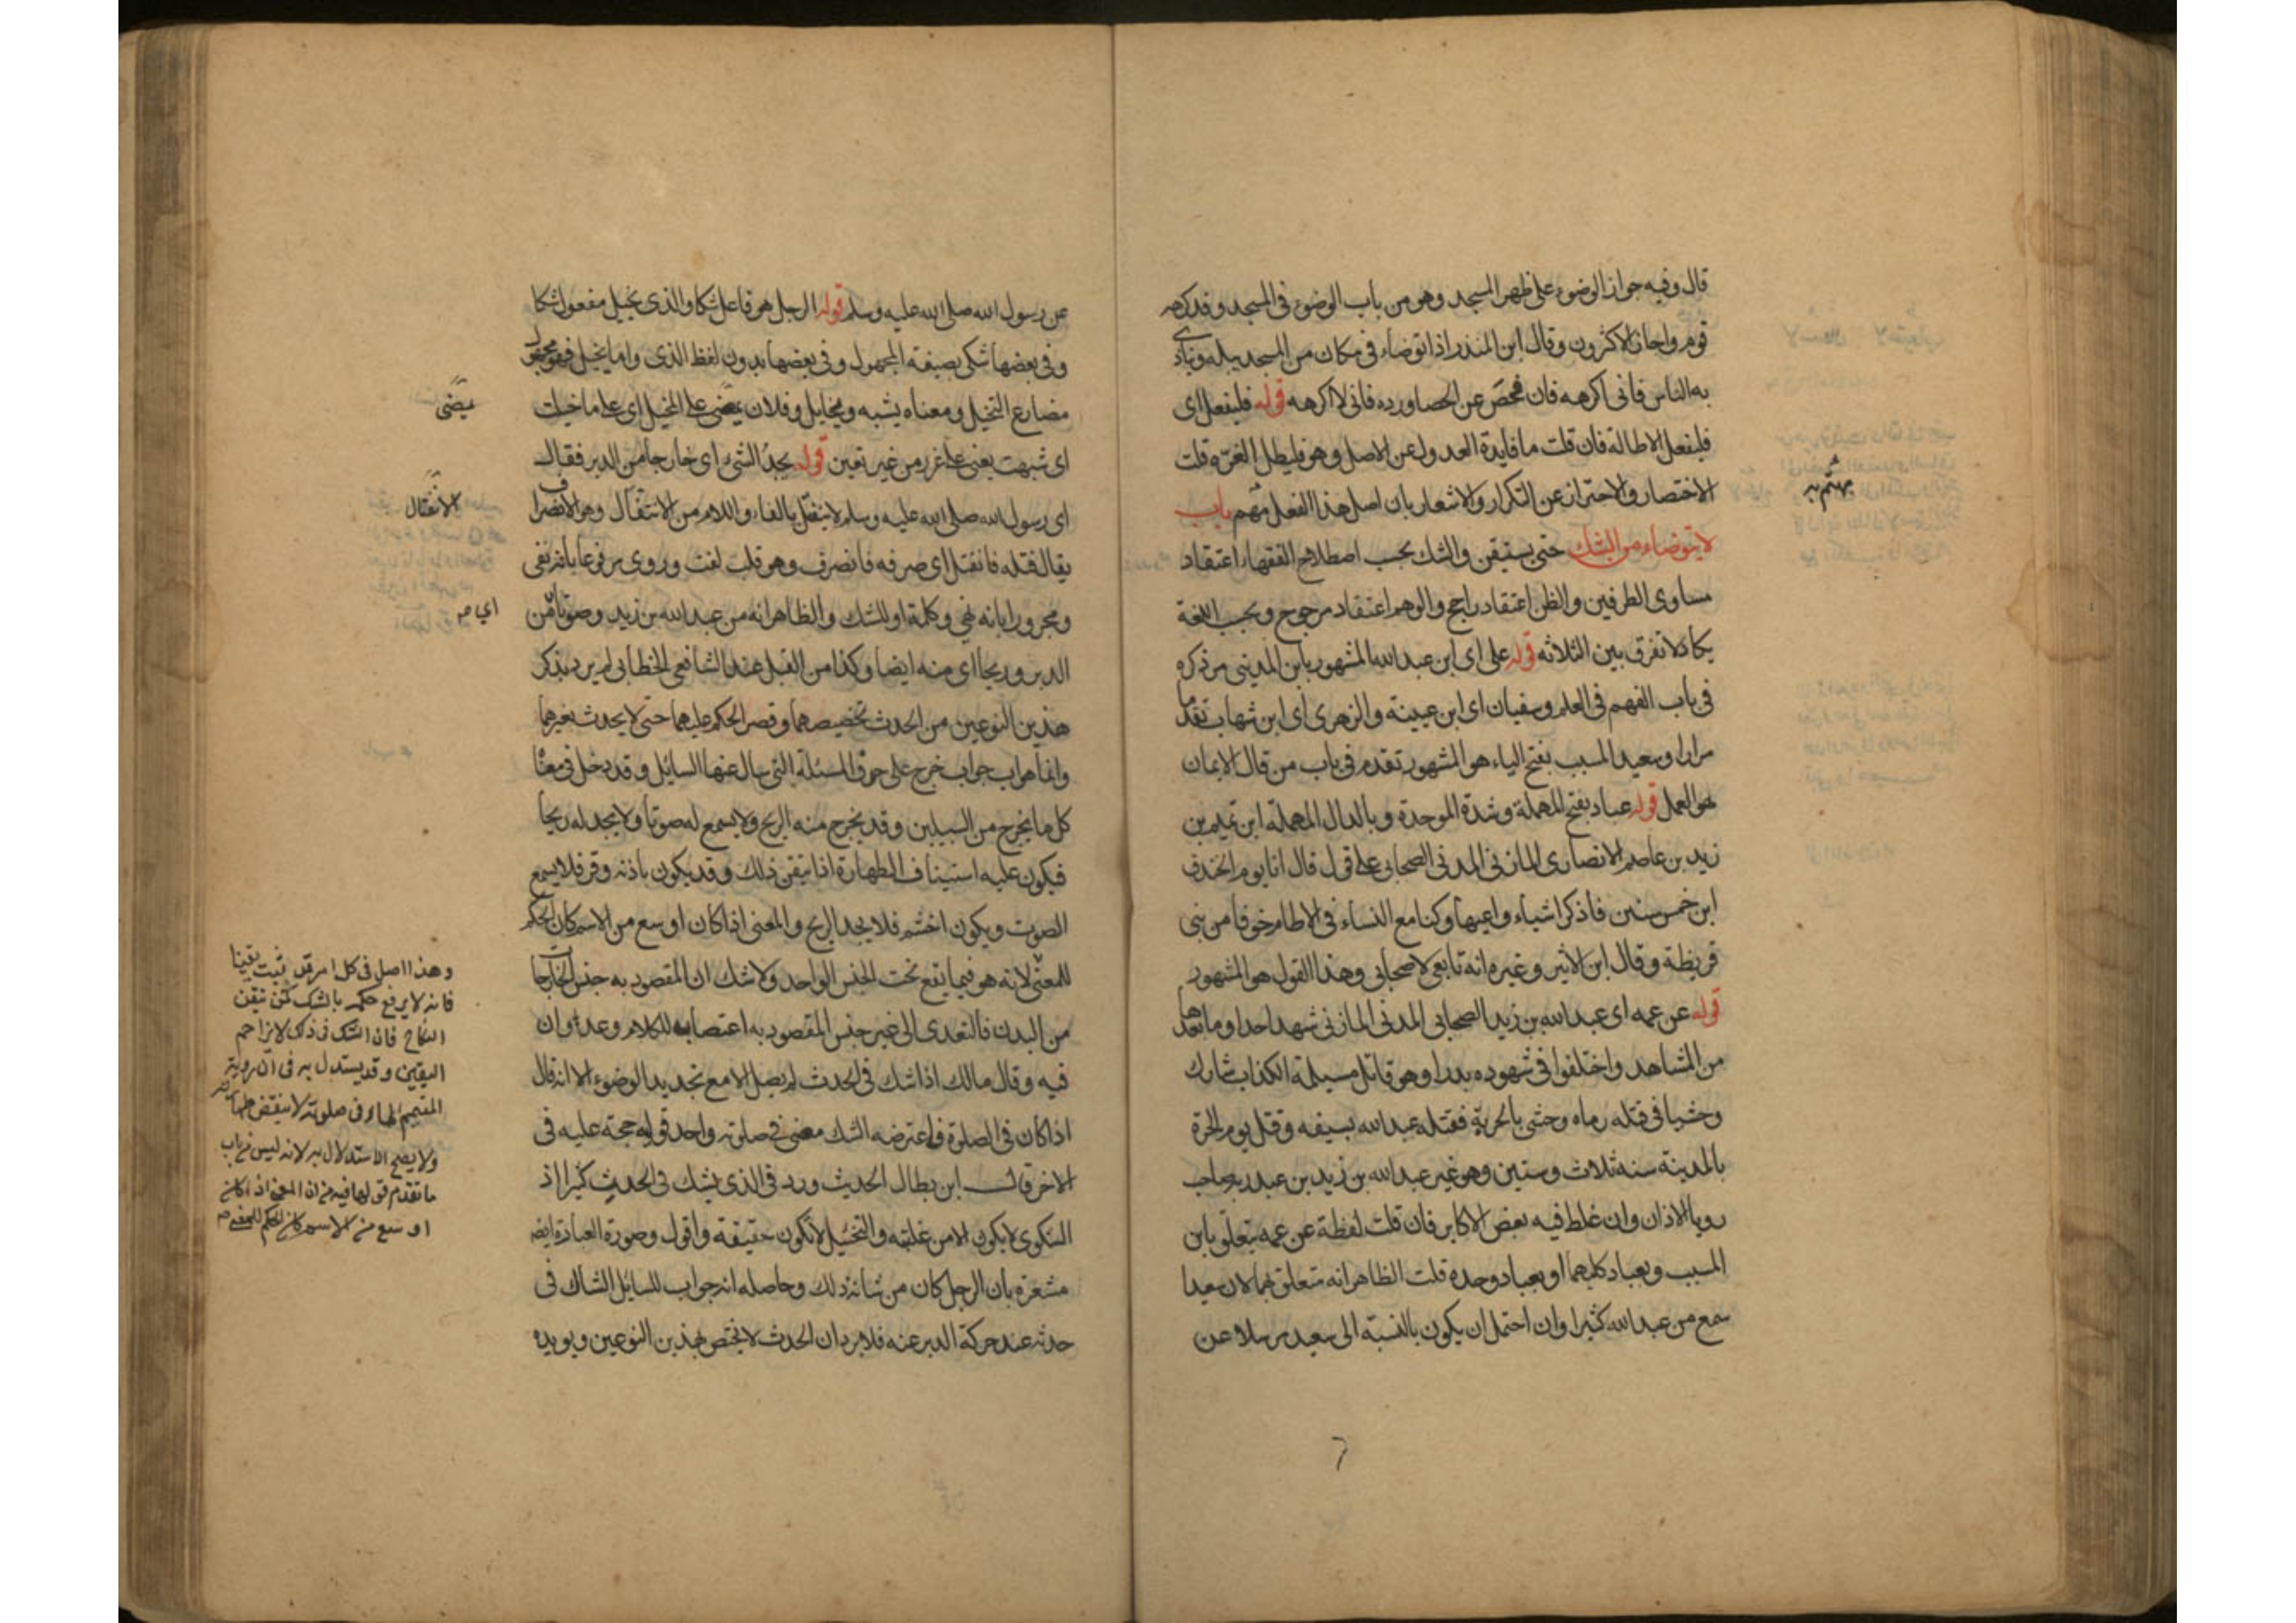 قال وفيه جواز الوضوء على ظهر المسجد وهو من باب الوضوء في المسجد وقد كرهه
قوم واجازه الاكثرون وقال ابن المنذر اذا توضاء في مكان من المسجد يبله ويتأذى
به الناس فاني اكرهه فان فحص عن الحصا ورده فاني لا اكرهه قوله فليفعل اى
فليفعل الاطالة فان قلت ما فايدة العدول عن الاصل وهو فليطل الغرة قلت
الاختصار والاحتراز عن التكرار والاشعار بان اصل هذا الفعل مهتم باب
لا يتوضاء من الشك حتى يستيقن والشك بحسب اصطلاح الفقهاء اعتقاد
مساوى الطرفين والظن اعتقاد راجح والوهم اعتقاد مرجوح وبحسب اللغة
يكاد لا تفرق بين الثلاثه قوله على اى ابن عبد الله المشهور بابن المديني مر ذكره
في باب الفهم في العلم وسفيان اى ابن عيينة والزهرى اى ابن شهاب تقدما
مرارا وسعيد المسيب بفتح الياء هو المشهور تقدم في باب من قال الايمان
هو العمل قوله عباد بفتح المهملة وشدة الموحدة وبالدال المهملة ابن تميم بن
زيد بن عاصم الانصارى المازني المدني الصحابي على قول قال انا يوم الخندق
ابن خمس سنين فاذكر اشياء واعيها وكنا مع النساء في الاطام خوفا من بني
قريظة وقال ابن الاثير وغيره انه تابعي لا صحابي وهذا القول هو المشهور
قوله عن عمه اى عبد الله بن زيد الصحابي المدني المازني شهد احدا وما بعدها
من المشاهد واختلفوا في شهوده بدرا وهو قاتل مسيلمة الكذاب شارك
وحشيا في قتله رماه وحشى بالحربة فقتله عبد الله بسيفه وقتل يوم الحرة
بالمدينة سنه ثلاث وستين وهو غير عبد الله بن زيد بن عبد ربه صاحب
رويا الاذان وان غلط فيه بعض الاكابر فان قلت لفظة عن عمه يتعلق بابن
المسيب وبعباد كليهما او بعباد وحده قلت الظاهر انه متعلق بهما لان سعيدا
سمع من عبد الله كثيرا وان احتمل ان يكون بالنسبة الى سعيد مرسلا عن
مهتم به
عن رسول الله صلى الله عليه وسلم قوله الرجل هو فاعل شكا والذى يخيل مفعول شكا
وفي بعضها شكى بصيغة المجهول وفي بعضها بدون لفظ الذى واما يخيل فهو مجهول
مضارع التخيل ومعناه يشبه ويخايل وفلان يمضى على المخيل اى على ما خيلت
اى شبهت يعنى على غرر من غير تعين قوله يجد الشئ اى خارجا من الدبر فقال
اى رسول الله صلى الله عليه وسلم لا ينفتل بالفاء واللام من الانتقال وهو الانصراف
يقال فتله فانفتل اى صرفه فانصرف وهو قلب لفت وروى مرفوعا بانه نفى
ومجزورا بانه نهي وكلمة او للشك والظاهر انه من عبد الله بن زيد وصوتا من
الدبر وريحا اى منه ايضا وكذا من القبل عند الشافعى الخطابي لم يرد بذكر
هذين النوعين من الحدث تخصيصهما وقصر الحكم عليهما حتى لا يحدث بغيرهما
وانما هو اب جواب خرج على حرف المسئلة التي سال عنها السايل وقد دخل في معناه
كل ما يخرج من السبيلين وقد يخرج منه الريح ولا يسمع له صوتا ولا يجد له ريحا
فيكون عليه استيناف الطهارة اذا تيقن ذلك وقد يكون باذنه وقر فلا يسمع
الصوت ويكون اخشم فلا يجد الريح والمعنى اذا كان اوسع من الاسم كان الحكم
للمعنى لانه هو فيما يقع تحت الجنس الواحد ولا شك ان المقصود به جنس الخارجات
من البدن فالتعدى الى غير جنس المقصود به اعتصاب للكلام وعدوان
فيه وقال مالك اذا شك في الحدث لم يصل الا مع تجديد الوضوء الا انه قال
اذا كان في الصلوة فاعترضه الشك مضى في صلوته واحد قوليه حجة عليه في
الاخر قال ابن بطال الحديث ورد في الذى يشك في الحديث كثيرا اذ
الشكوى لا يكون الا من غلبة والتخيل لا تكون حقيقة واقول وصورة العبادة ايضا
مشعرة بان الرجل كان من شانه ذلك وحاصله انه جواب للسايل الشاك في
حدثه عند حركة الدبر عنه فلا يرد ان الحدث لا يختص بهذين النوعين ويويده
يمضى
الانفتال
اي من
وهذا اصل في كل امر قد يثبت يقينا
فانه لا يرفع حكمه بالشك كمن تيقن
النكاح فان الشك في ذلك لا يزاحم
اليقين وقد يستدل به في ان روية
المتيمم الماء في صلوته لا ينقض طهارته
ولا يصح الاستدلال به لانه ليس من باب
ما تقدم قولها فيه من ان المعنى اذا كان
اوسع من الاسم كان الحكم للمعنى